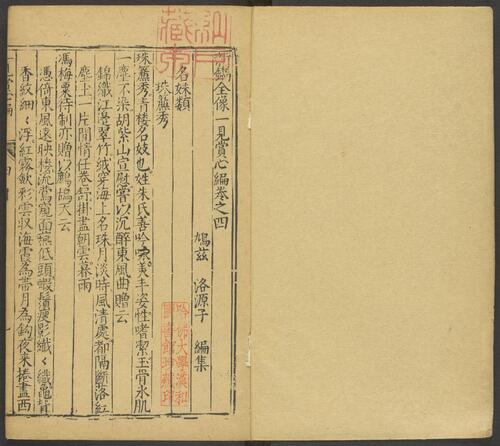 新鐫全像一見賞心編卷之四
鳩茲　洛源子　編集
名妹類
珠簾秀
珠簾秀青樓名妓也姓朱氏善吟咏美丰姿性嗜潔玉骨氷肌
一塵不染胡紫山宣慰嘗以沉醉東風曲贈云
錦織江邉翠竹絨穿海上名珠月淡時風清處都隔斷落紅
塵土一片閒情任卷舒掛盡朝雲暮雨
馮梅粟待制亦贈以鷓鴣天云
憑倚東風遠映樓流鶯窺面燕低頭蝦鬚瘦影纖〻織龜背
香紋細〻浮紅霧歛彩雲収海霞為帶月為鈎夜來捲盡西
哈佛大學漢和
圖書館珍藏印